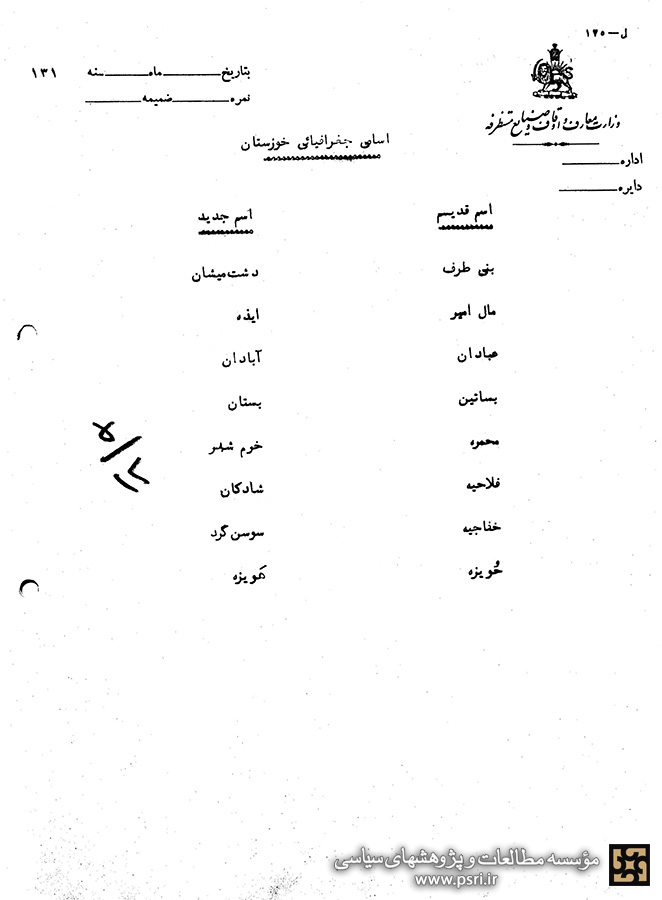 ل — ۱۲۵
وزارت معارف و اوقاف و صنایع مستظرفه
اداره
دایره
بتاریخ ماه سنه ۱۳۱
نمره ضمیمه
اسامی جغرافیائی خوزستان
اسم قدیم اسم جدید
بنی طرف دشت میشان
مال امیر ایذه
عبادان آبادان
بساتین بستان
محمره خرم شهر
فلاحیه شادکان
خفاجیه سوسن گرد
حویزه هویزه
مؤسسه مطالعات و پژوهشهای سیاسی
www.psri.ir